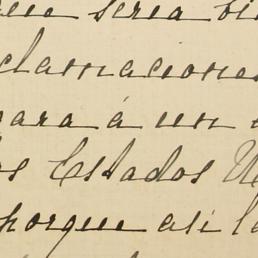 que seria bi
clamaciones
para á un
os Estados U
porque asi l